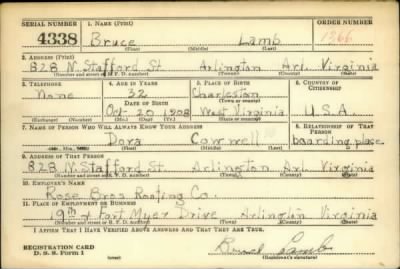 SERIAL NUMBER 1. NAME (Print) ORDER NUMBER
4338 Bruce Lamb 1266
(First) (Middle) (Last)
2. ADDRESS (Print)
828 N. Stafford St. Arlington Arl. Virginia
(Number and street or R. F. D. number) (Town) (County) (State)
3. TELEPHONE 4. AGE IN YEARS 5. PLACE OF BIRTH 6. COUNTRY OF CITIZENSHIP
None 32 Charleston
DATE OF BIRTH (Town or county)
Oct. 20 1908 West Virginia U.S.A.
(Exchange) (Number) (Mo.) (Day) (Yr.) (State or country)
7. NAME OF PERSON WHO WILL ALWAYS KNOW YOUR ADDRESS 8. RELATIONSHIP OF THAT PERSON
Dora boarding place
(Mr., Mrs., Miss) (First) (Middle) (Last)
9. ADDRESS OF THAT PERSON
828 N. Stafford St. Arlington Arl. Virginia
(Number and street or R. F. D. number) (Town) (County) (State)
10. EMPLOYER'S NAME
Rose Bros. Roofing Co.
11. PLACE OF EMPLOYMENT OR BUSINESS
19th & Fort Myer Drive Arlington Virginia
(Number and street or R. F. D. number) (Town) (County) (State)
I AFFIRM THAT I HAVE VERIFIED ABOVE ANSWERS AND THAT THEY ARE TRUE.
REGISTRATION CARD
D. S. S. Form 1 Bruce Lamb
(Registrant's signature)